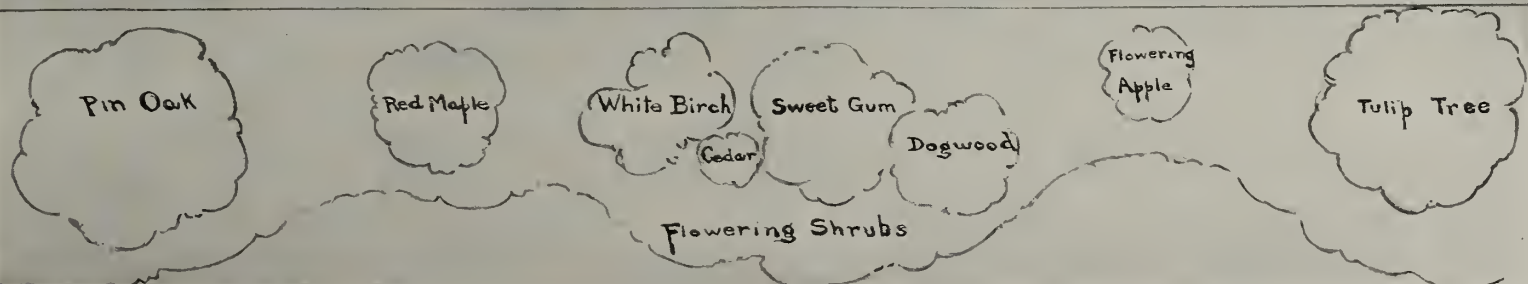 Pin Oak
Red Maple
White Birch
Cedar
Sweet Gum
Dogwood
Flowering
Apple
Tulip Tree
Flowering Shrubs